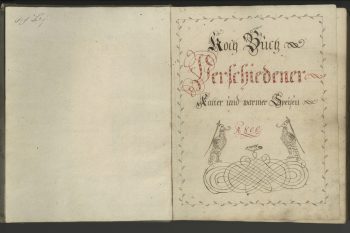 Koch Buch
Verschiedener
Kalter und warmer Speysen